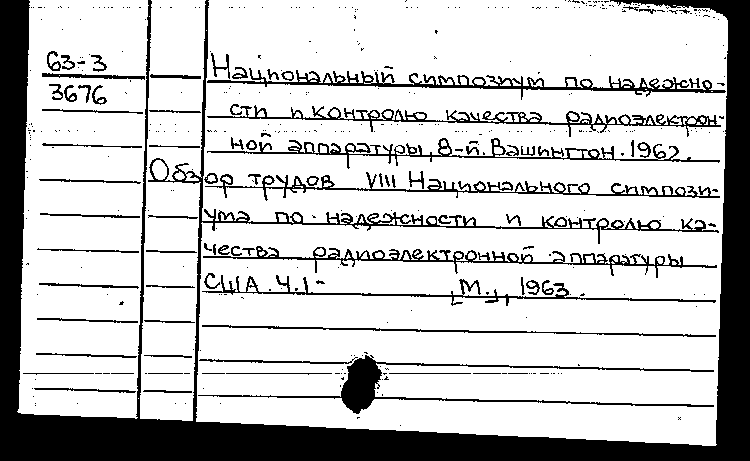 63-3
3676
Национальный симпозиум по надежно-
сти и контролю качества радиоэлектрон-
ной аппаратуры, 8-й. Вашингтон. 1962.
Обзор трудов VIII Национального симпози-
ума по надежности и контролю ка-
чества радиоэлектронной аппаратуры
США. Ч.1- [М.], 1963.